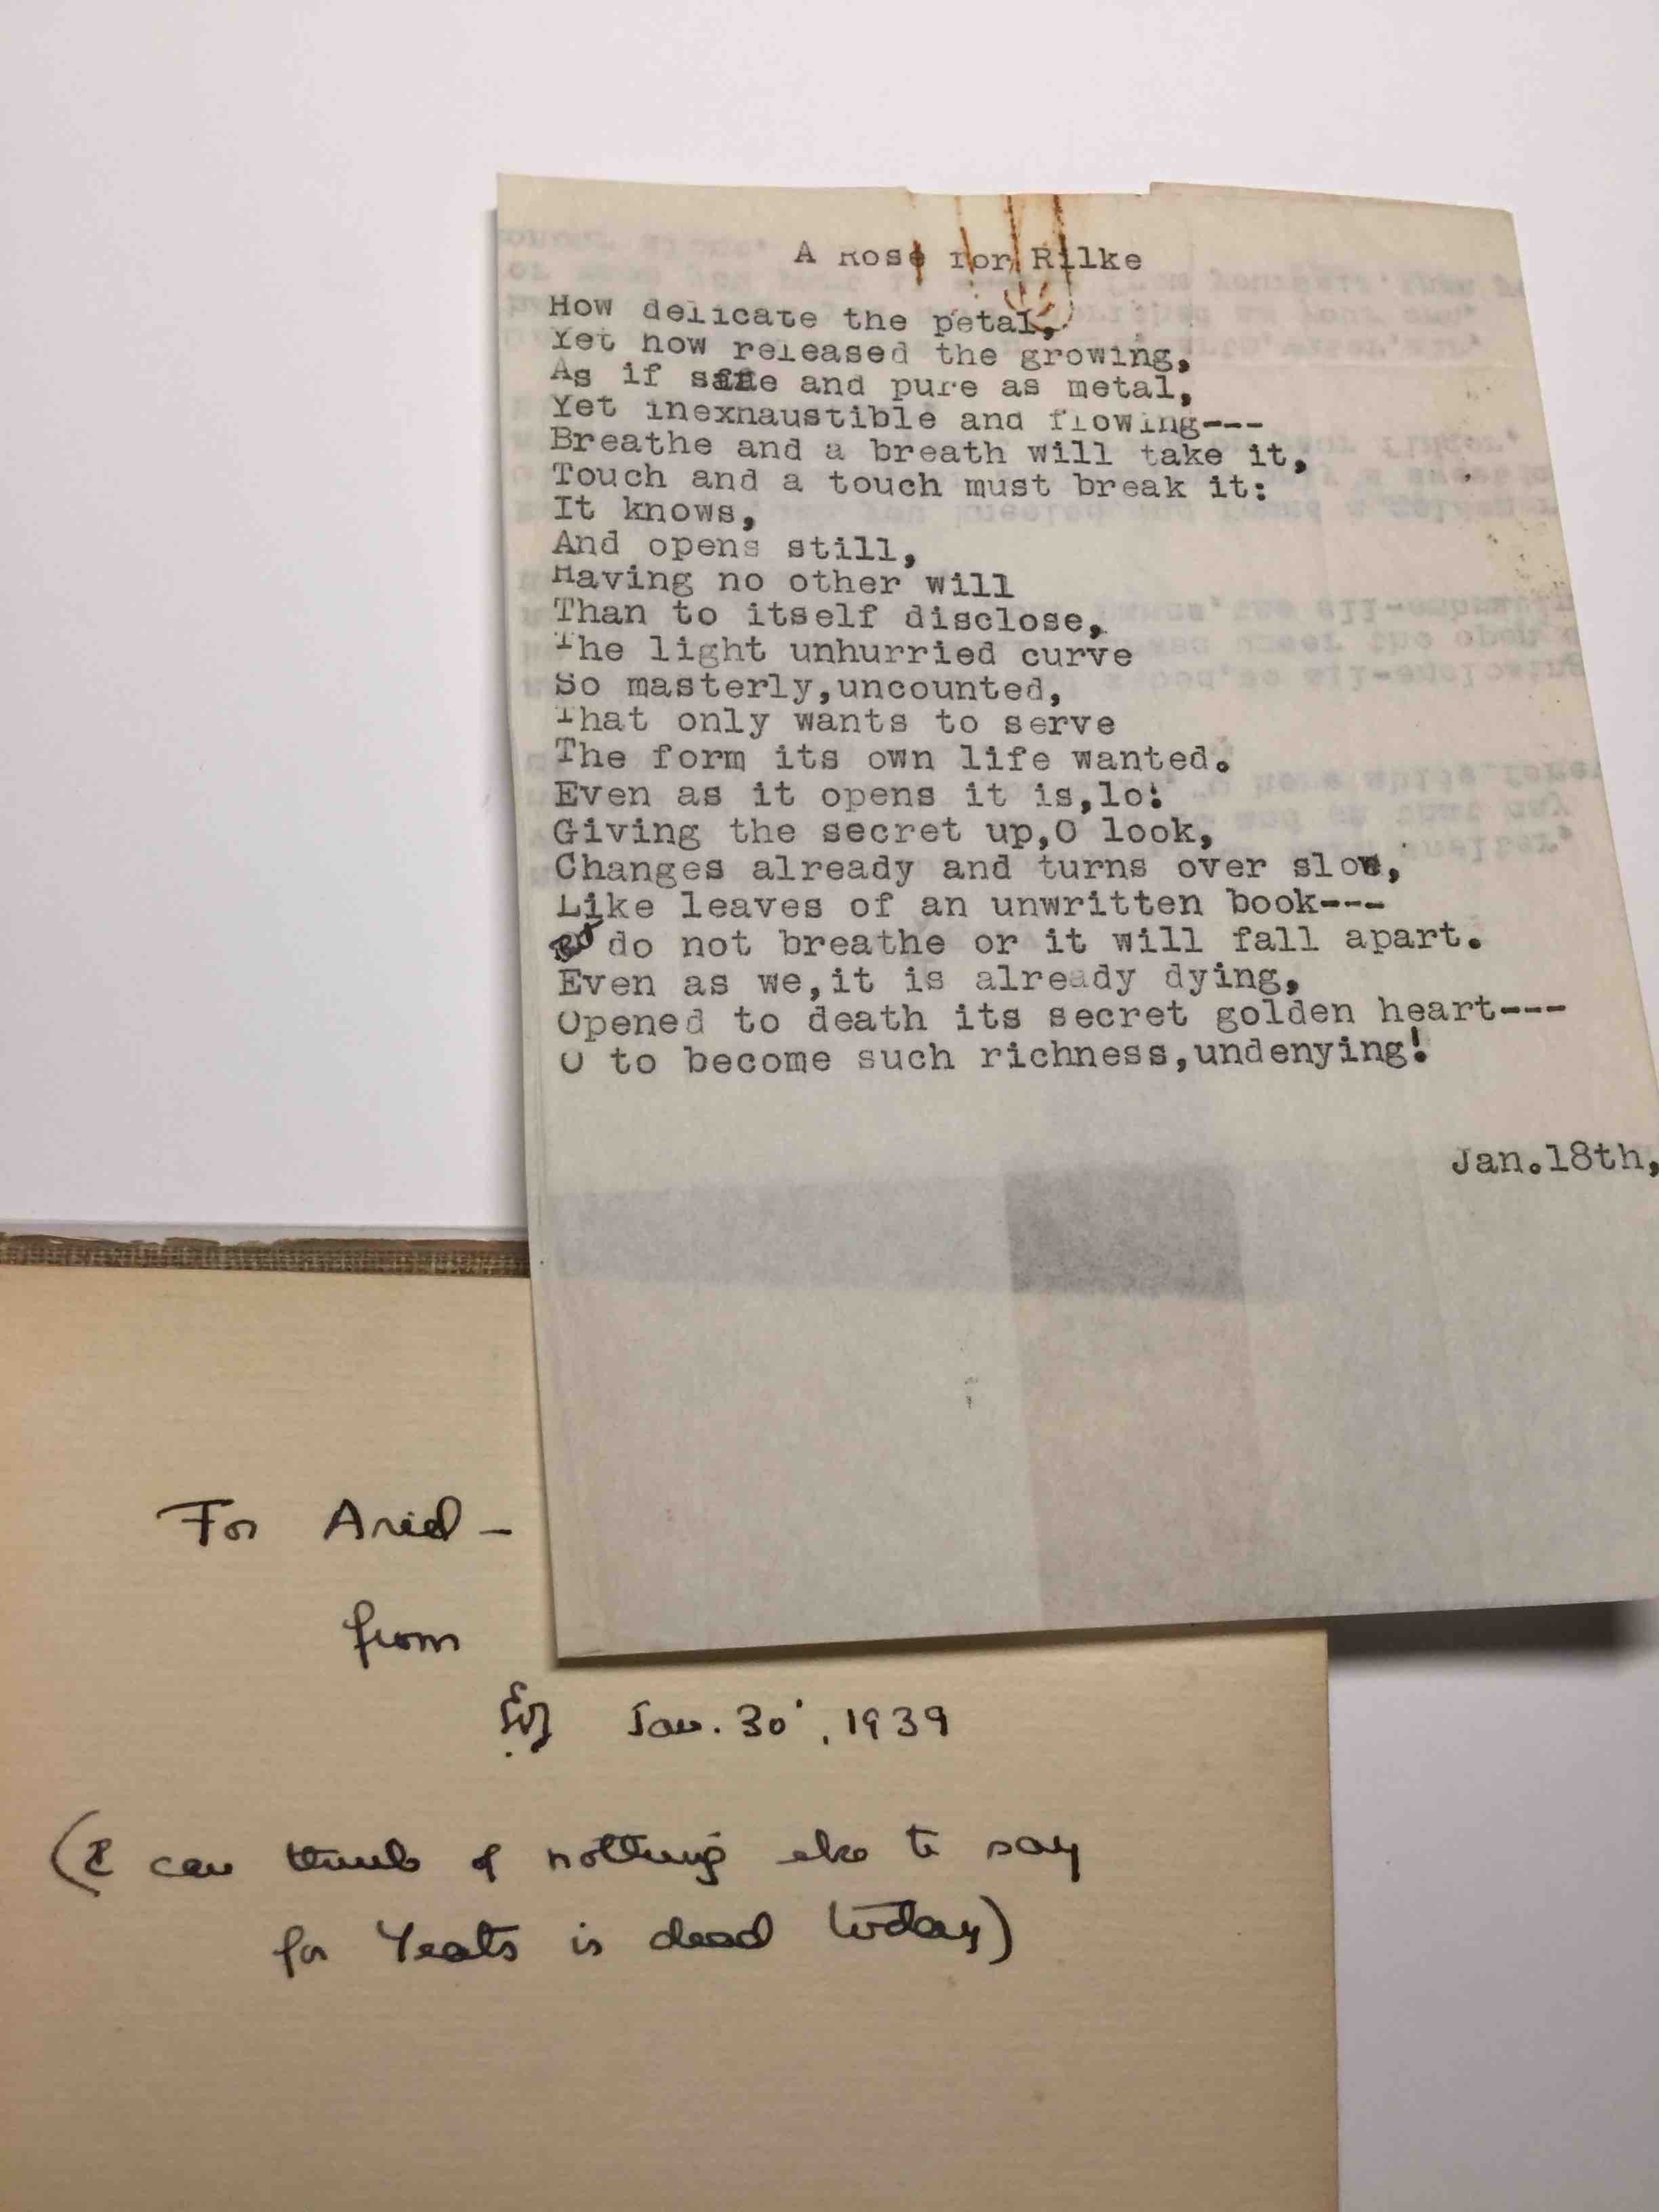 A Rose for Rilke
How delicate the petal,
Yet how released the growing,
As if safe and pure as metal,
Yet inexhaustible and flowing---
Breathe and a breath will take it,
Touch and a touch must break it:
It knows,
And opens still,
Having no other will
Than to itself disclose,
The light unhurried curve
So masterly,uncounted,
That only wants to serve
The form its own life wanted.
Even as it opens it is,lo!
Giving the secret up,O look,
Changes already and turns over slow,
Like leaves of an unwritten book---
do not breathe or it will fall apart.
Even as we,it is already dying,
Opened to death its secret golden heart---
O to become such richness,undenying!
Jan.18th,
For Ariel -
from
Jan. 30, 1939
(I can think of nothing else to say
for Yeats is dead today)